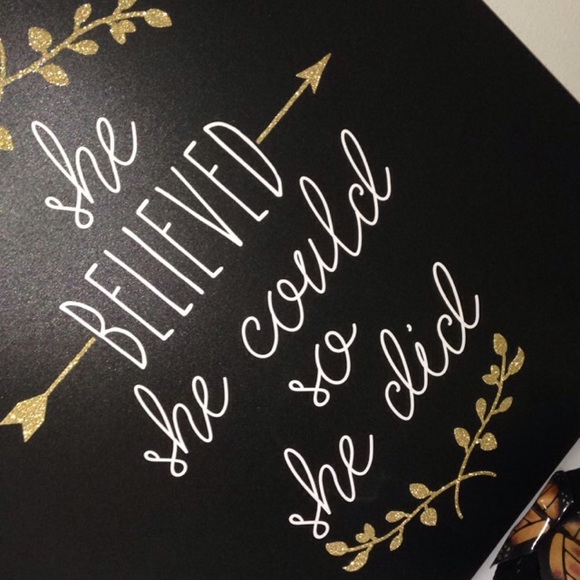 she
BELIEVED
she could
so
she did